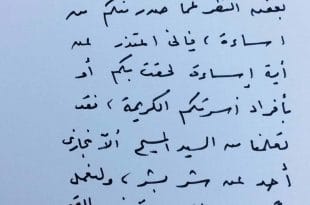 بغض النظر عما صدر منكم من
اساءة ، فإني اعتذر عن
أية إساءة لحقت بكم أو
بأفراد أسرتكم الكريمة ، فقد
تعلمنا من السيد المسيح ألا نجازي
أحد عن شر بشر ، ولنعمل